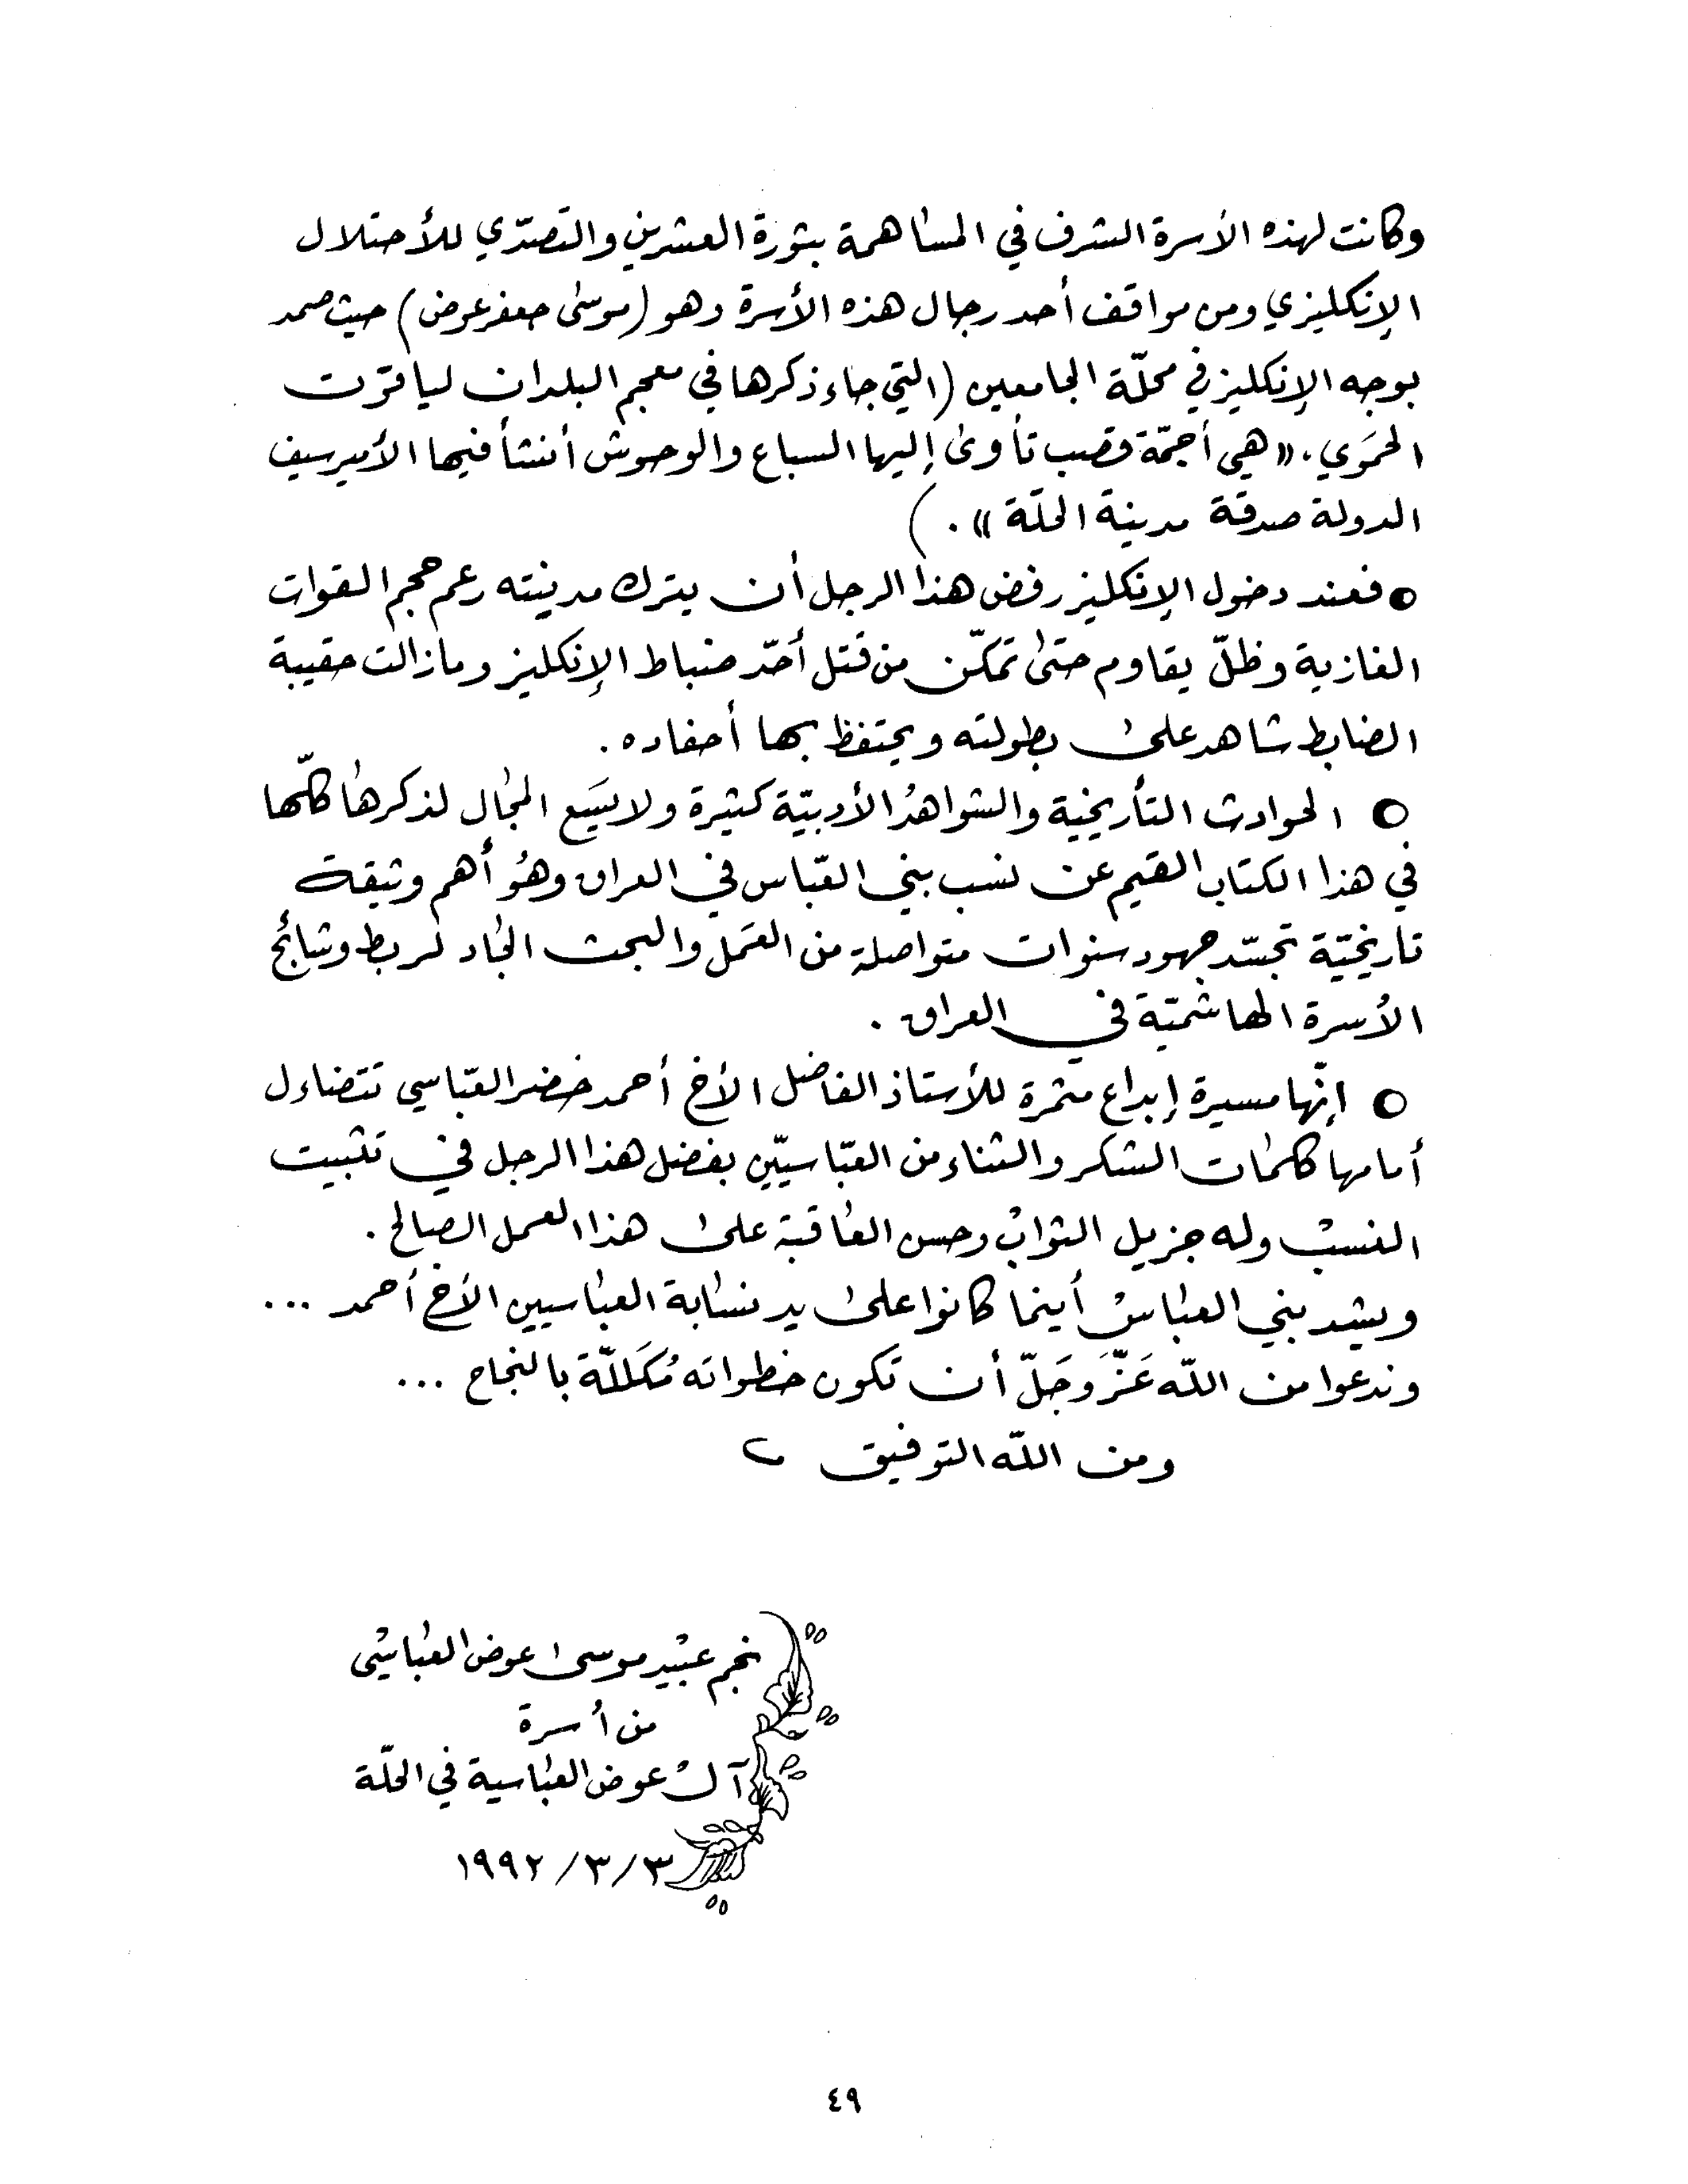 وكانت لهذه الأسرة الشرف في المساهمة بثورة العشرين والتصدّي للأحتلال
الإنكليزي ومن مواقف أحد رجال هذه الأسرة وهو (موسى جعفر عوض) حيث صمد
بوجه الإنكليز في محلّة الجامعين (التي جاء ذكرها في معجم البلدان لياقوت
الحمَوي، «هي أجمّة قصب تأوى إليها السباع والوحوش أنشأ فيها الأمير سيف
الدولة صدقة مدينة الحلّة» . )
○ فعند دخول الإنكليز رفض هذا الرجل أن يترك مدينته رغم حجم القوات
الغازية وظلّ يقاوم حتى تمكّن من قتل أحّد ضباط الإنكليز ومازالت حقيبة
الضابط شاهد على بطولته ويحتفظ بها أحفاده .
○ الحوادث التأريخية والشواهدُ الأدبيّة كثيرة ولا يسَع المجال لذكرها كلّها
في هذا الكتاب القيم عن نسب بني العبّاس في العراق وهُو أهم وثيقة
تاريخيّة تجسّد جهود سنوات متواصلة من العمَل والبحث الجاد لربط وشائج
الأسرة الهاشميّة في العراق .
○ إنّها مسيرة إبداع مثمرة للأستاذ الفاضل الأخ أحمد خضر العبّاسي تتضاءل
أمامها كلمات الشكر والثناء من العبّاسيّين بفضل هذا الرجل في تثبيت
النسب وله جزيل الثواب وحسن العاقبة على هذا العمل الصالح .
ويشد بني العباس أينما كانوا على يد نسابة العباسيين الأخ أحمد ...
وندعوا من اللّه عَزَّ وَجَلّ أن تكون خطواته مُكَللّة بالنجاح ...
ومن اللّه التوفيق
نجم عبيد موسى عوض العباسي
من أسرة
آل عوض العباسية في الحلّة
٣/٣/١٩٩٢
٤٩